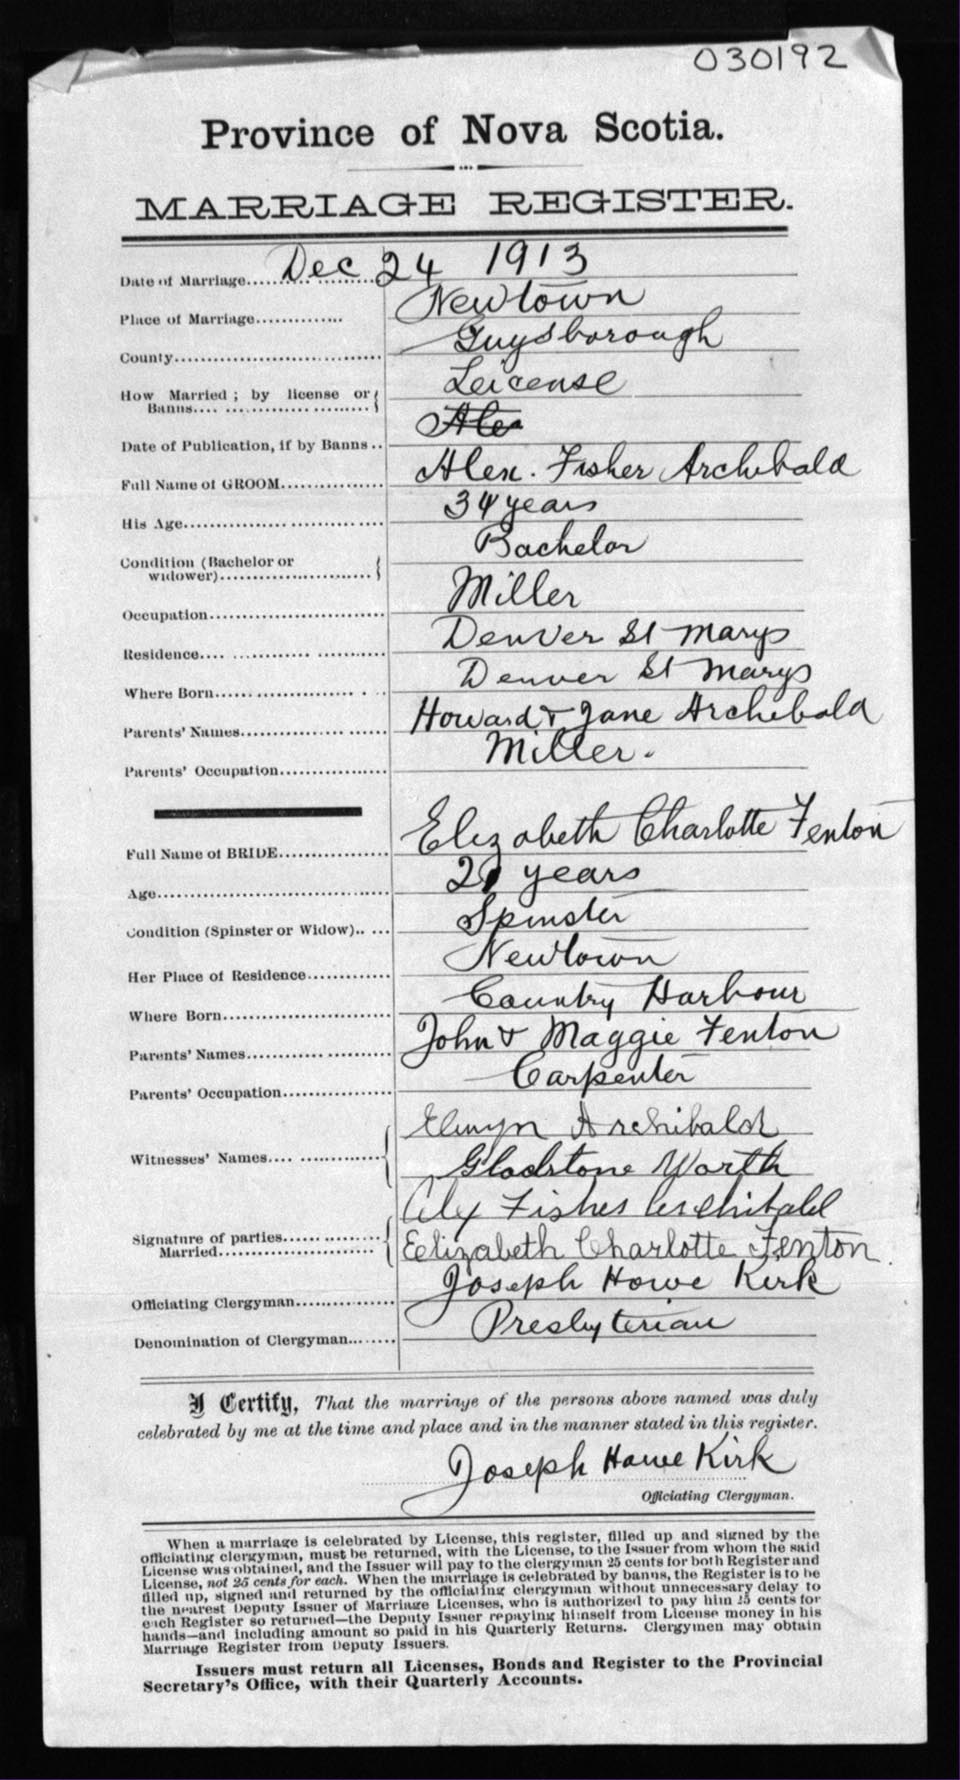 030192
Province of Nova Scotia.
MARRIAGE REGISTER.
Date of Marriage.... Dec 24 1913
Place of Marriage.... Newtown
County.... Guysborough
How Married ; by license or Banns.... Leicense
Date of Publication, if by Banns.. Alex
Full Name of GROOM.... Alex. Fisher Archibald
His Age.... 34 years
Condition (Bachelor or widower).... Bachelor
Occupation.... Miller
Residence.... Denver St Marys
Where Born.... Denver St Marys
Parents' Names.... Howard & Jane Archibald
Parents' Occupation.... Miller.
Full Name of BRIDE.... Elizabeth Charlotte Fenton
Age.... years
Condition (Spinster or Widow).... Spinster
Her Place of Residence.... Newtown
Where Born.... Country Harbour
Parents' Names.... John & Maggie Fenton
Parents' Occupation.... Carpenter
Witnesses' Names.... Elwyn Archibald
Gladstone Worth
Signature of parties Married.... Alex Fisher Archibald
Elizabeth Charlotte Fenton.
Officiating Clergyman.... Joseph Howe Kirk
Denomination of Clergyman.... Presbyterian
I Certify, That the marriage of the persons above named was duly
celebrated by me at the time and place and in the manner stated in this register.
Joseph Howe Kirk
Officiating Clergyman.
When a marriage is celebrated by License, this register, filled up and signed by the
officiating clergyman, must be returned, with the License, to the Issuer from whom the said
License was obtained, and the Issuer will pay to the clergyman 25 cents for both Register and
License, not 25 cents for each. When the marriage is celebrated by banns, the Register is to be
filled up, signed and returned by the officiating clergyman without unnecessary delay to
the nearest Deputy Issuer of Marriage Licenses, who is authorized to pay him 25 cents for
each Register so returned—the Deputy Issuer repaying himself from License money in his
hands—and including amount so paid in his Quarterly Returns. Clergymen may obtain
Marriage Register from Deputy Issuers.
Issuers must return all Licenses, Bonds and Register to the Provincial
Secretary's Office, with their Quarterly Accounts.